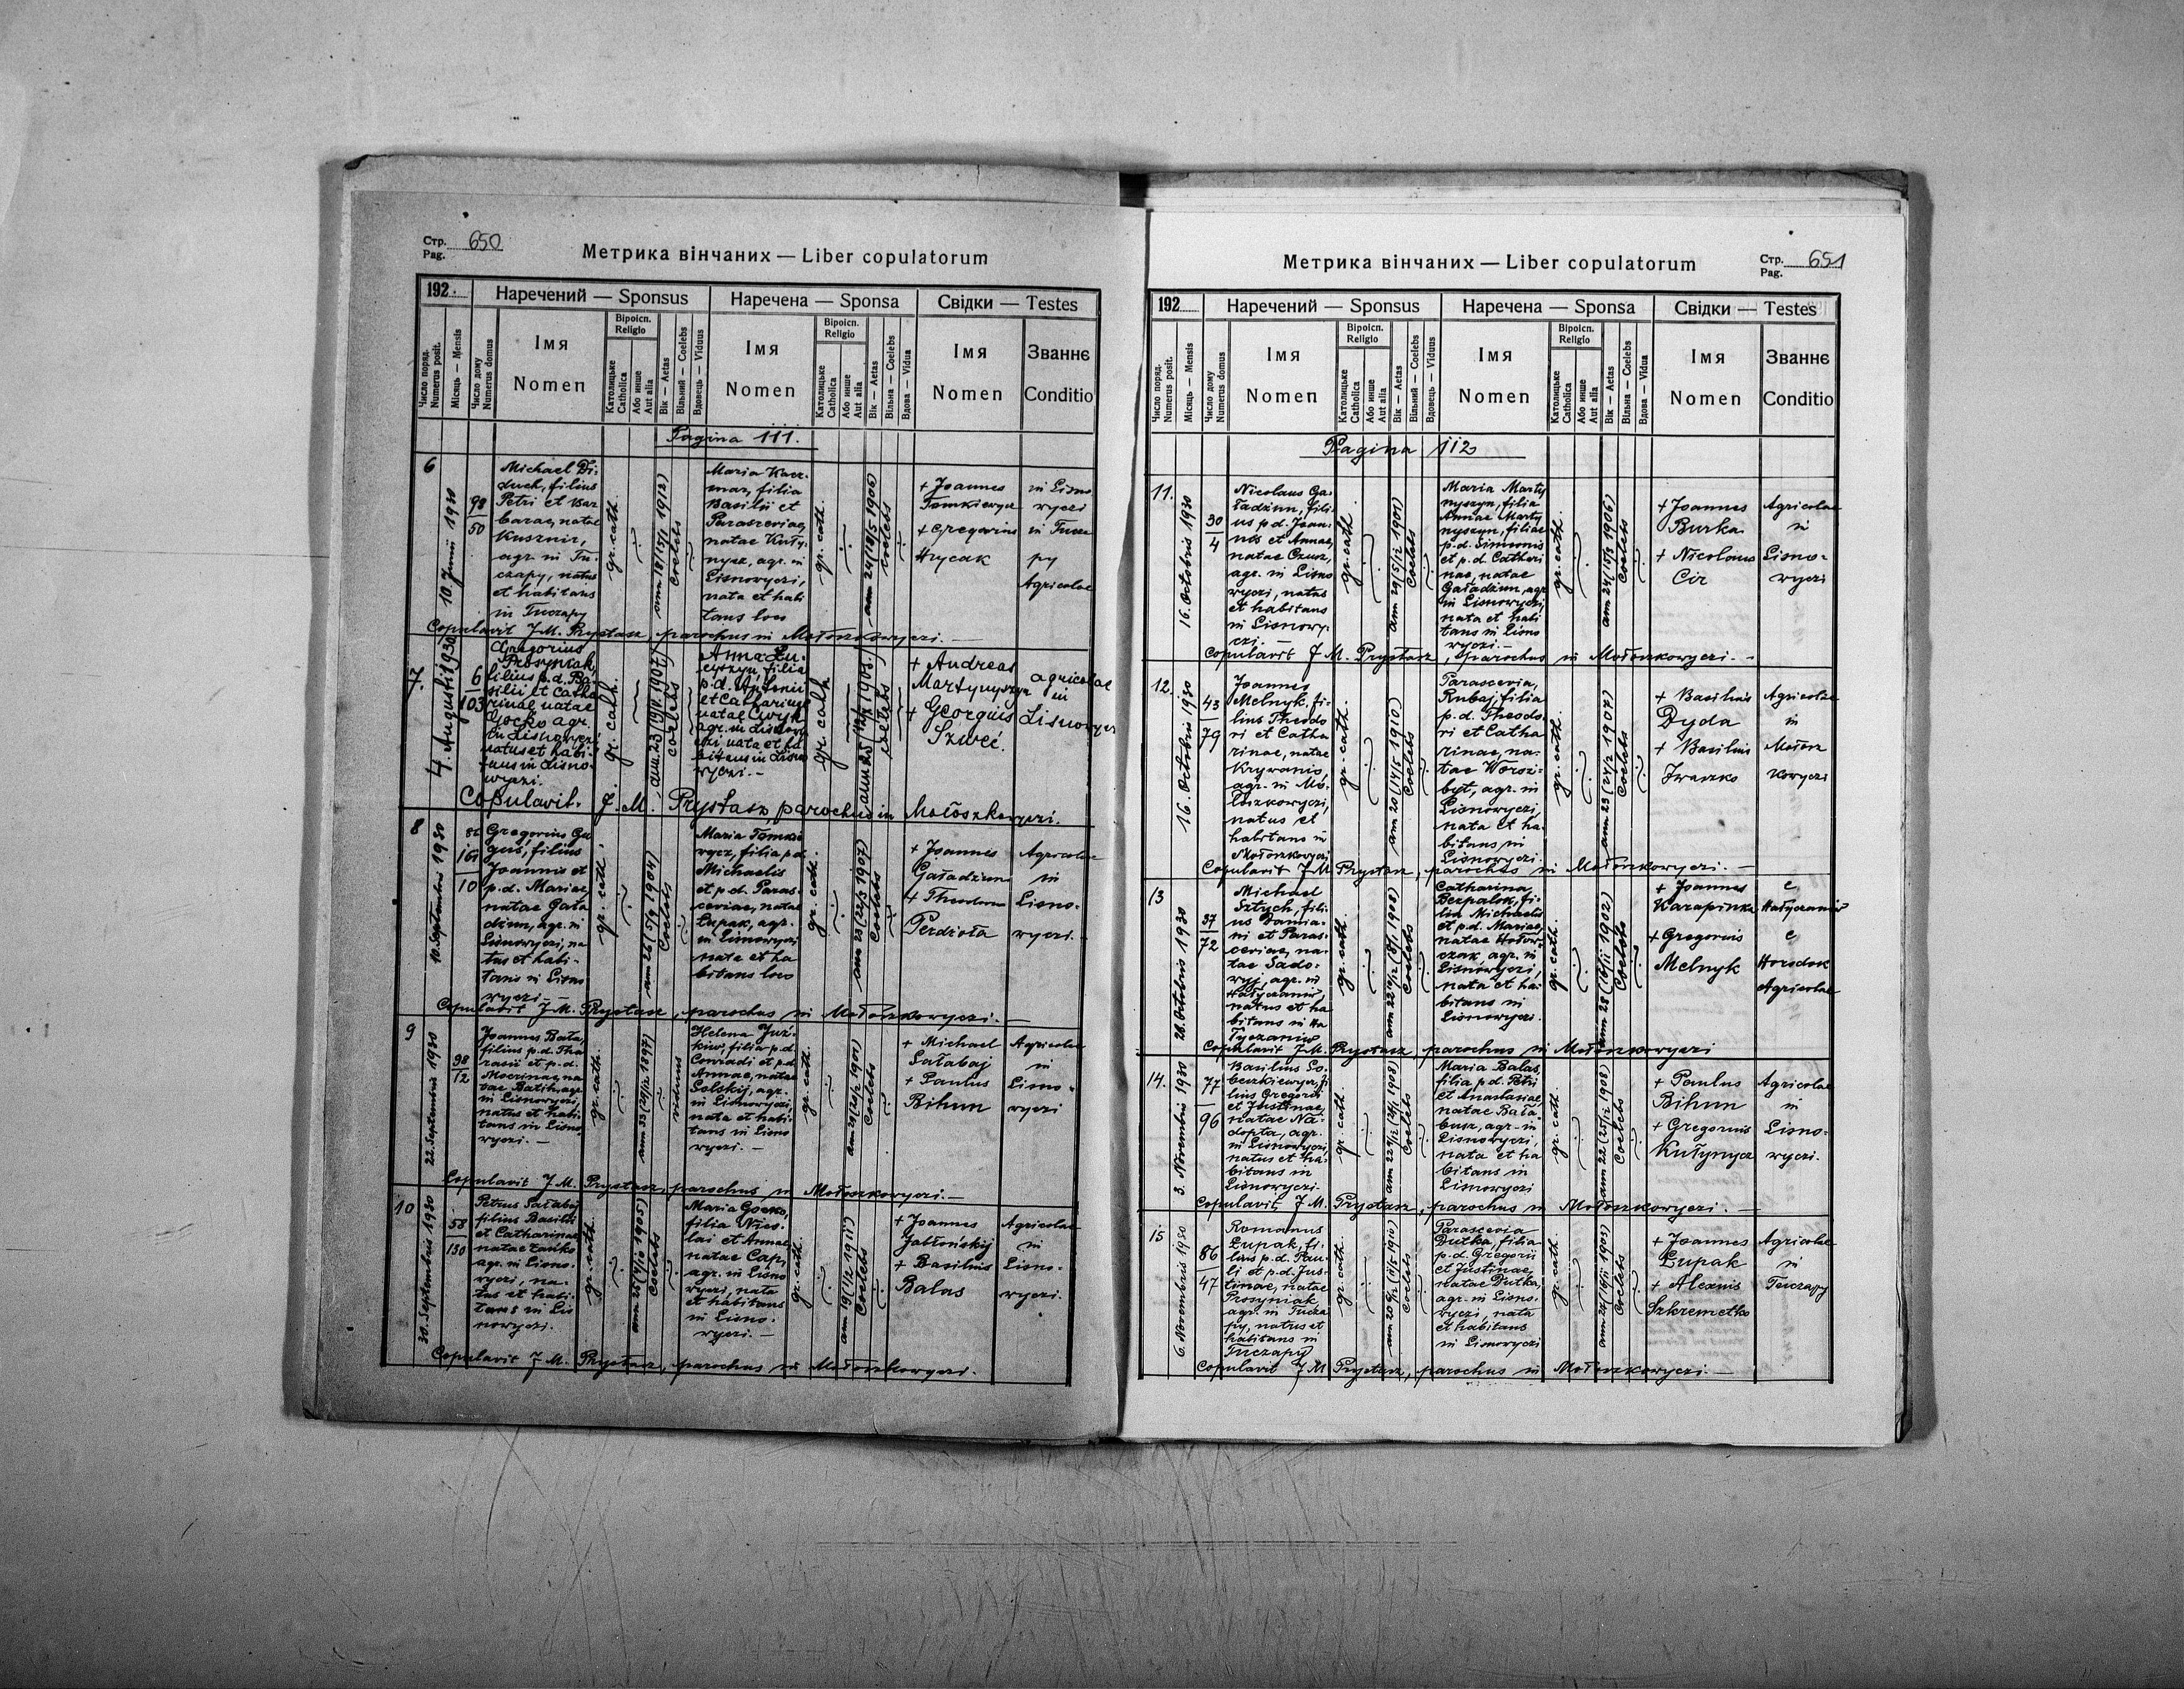 Стр. 650
Pag.
Метрика вінчаних — Liber copulatorum
192
Наречений — Sponsus
Наречена — Sponsa
Свідки — Testes
Число поряд.
Numerus posit.
Місяць — Mensis
Число дому
Numerus domus
Імя
Nomen
Віроісп.
Religio
Католицьке
Catholica
Або инше
Aut alia
Вік — Aetas
Вільний — Coelebs
Вдовець — Viduus
Імя
Nomen
Віроісп.
Religio
Католицьке
Catholica
Або инше
Aut alia
Вік — Aetas
Вільна — Coelebs
Вдова — Vidua
Імя
Nomen
Званнє
Conditio
Pagina 111.
6
10. Junii 1930
98
50
Michael Di-
duch, filius
Petri et Bar
barae, natae
Kusznir,
agr. in Tu-
czapy, natus
et habitans
in Tuczapy
gr. cath.
ann 18 (15/1 1912)
Coelebs
Maria Kacz-
mar, filia
Basilii et
Parasceviae,
natae Kuły-
nycz, agr. in
Lisnowyczi,
nata et habi
tans loco
gr. cath.
ann 24 (18/5 1906)
coelebs
+ Joannes
Tomkiewycz
+ Gregorius
Hrycak
in Lisno
wyczi
in Tucza
py
Agricolae
Copulavit J. M. Prystasz, parochus in Mołoszkowyczi. —
7.
4. Augusti 1930
6
103
Gregorius
Prosyniak,
filius p. d. Ba
silii et Catha
rinae natae
Gocko agr.
in Lisnowyczi
natus et habi-
tans in Lisno-
wyczi.
gr. cath.
coelebs
Anna Lu-
cyszyn, filia
p. d. Antonii
et Catharinae
natae Cwyk
agr. in Lisnow
czi nata et ha
bitans in Lisno
wyczi. —
gr. cath.
coelebs
+ Andreas
Martynyszyn
+ Georgius
Szweć.
agricolae
in
Lisnowyczi
Copulavit. J. M. Prystasz, parochus in Mołoszkowyczi.
8
10. Septembris 1930
161
10
Gregorius Ga
guś, filius
Joannis et
p. d. Mariae
natae Gała
dżun, agr. in
Lisnowyczi, na
tus et habi-
tans in Lisno
wyczi —
gr. cath.
ann 26 (5/9 1904)
Coelebs
Maria Tomke
wycz, filia p. d.
Michaelis
et p. d. Paras
ceviae, natae
Łupak, agr.
in Lisnowyczi
nata et ha
bitans loco
gr. cath.
ann 23 (22/3 1907)
Coelebs
+ Joannes
Gaładżun
+ Theodorus
Perdżoła
Agricolae
in
Lisno-
wyczi.
Copulavit J. M. Prystasz, parochus in Mołoszkowyczi. —
9
22. Septembris 1930
98
12
Joannes Bała,
filius p. d. Tha
rasii et p. d.
Mocrinae na
tae Batih agr.
in Lisnowyczi,
natus et habi
tans in Lisno
wyczi. —
gr. cath.
viduus
Helena Jur-
kiw, filia p. d.
Conradi et p. d.
Annae, natae
Solskij, agr.
in Lisnowyczi,
nata et habi-
tans in Lisno
wyczi. —
gr. cath.
Coelebs
+ Michael
Sałabaj
+ Paulus
Bihun
Agricolae
in
Lisno-
wyczi
Copulavit J. M. Prystasz, parochus in Mołoszkowyczi. —
10
30. Septembris 1930
58
130
Petrus Sałabaj
filius Basilii
et Catharinae
natae Łańko
agr. in Lisno-
wyczi, na-
tus et habi-
tans in Lis
nowyczi.
gr. cath.
Coelebs
Maria Gocko,
filia Nico-
lai et Annae
natae Cap,
agr. in Lisno
wyczi, nata
et habitans
in Lisno-
wyczi. —
gr. cath.
Coelebs
+ Joannes
Jabłońskij
+ Basilius
Balas
Agricolae
in
Lisno-
wyczi.
Copulavit J. M. Prystasz, parochus in Mołoszkowyczi.
Стр. 651
Pag.
Метрика вінчаних — Liber copulatorum
192
Наречений — Sponsus
Наречена — Sponsa
Свідки — Testes
Число поряд.
Numerus posit.
Місяць — Mensis
Число дому
Numerus domus
Імя
Nomen
Віроісп.
Religio
Католицьке
Catholica
Або инше
Aut alia
Вік — Aetas
Вільний — Coelebs
Вдовець — Viduus
Імя
Nomen
Віроісп.
Religio
Католицьке
Catholica
Або инше
Aut alia
Вік — Aetas
Вільна — Coelebs
Вдова — Vidua
Імя
Nomen
Званнє
Conditio
Pagina 112
11.
16. Octobris 1930
30
4
Nicolaus Ga-
ładżun, fili-
us p. d. Joan-
nis et Annae,
natae Czusz,
agr. in Lisno
wyczi, natus
et habitans
in Lisnowy-
czi. —
gr. cath.
ann 29 (5/12 1901)
Coelebs
Maria Marty
nyszyn, filia
Annae Marty
nyszyn, filiae
p. d. Simionis
et p. d. Cathari
nae, natae
Gaładżun, agr.
in Lisnowyczi,
nata et habi
tans in Lisno
wyczi. —
gr. cath.
Coelebs
+ Joannes
Burka
+ Nicolaus
Cir
Agricolae
in
Lisno-
wyczi
Copulavit J. M. Prystasz, parochus in Mołoszkowyczi. —
12.
16. Octobris 1930
43
79
Joannes
Melnyk, fi-
lius Theodo
ri et Catha
rinae, natae
Krywanis,
agr. in Mo-
łoszkowyczi,
natus et
habitans in
Mołoszkowyczi
gr. cath.
ann 20 (14/5 1910)
Coelebs
Parascevia,
Rubaj, filia
p. d. Theodo
ri et Catha
rinae, na-
tae Worozi-
byt, agr. in
Lisnowyczi,
nata et ha-
bitans in
Lisnowyczi.
gr. cath.
ann 23 (24/2 1907)
Coelebs
+ Basilius
Dyda
+ Basilius
Iwaszko
Agricolae
in
Mołosz
kowyczi
Copulavit J. M. Prystasz, parochus in Mołoszkowyczi. —
13
28. Octobris 1930
37
72
Michael
Sztych, fili-
us Damia-
ni et Paras-
ceviae, na-
tae Sado-
wyj, agr. in
Hałyczaniw,
natus et ha
bitans in Ha
łyczaniw
gr. cath.
Coelebs
Catharina
Bezpalok, fi-
lia Michaelis
et p. d. Mariae,
natae Hołow-
czak, agr. in
Lisnowyczi,
nata et ha-
bitans in
Lisnowyczi.
gr. cath.
Coelebs
+ Joannes
Karapinka
+ Gregorius
Melnyk
e
Hałyczaniw
e
Horodok
Agricolae
Copulavit J. M. Prystasz, parochus in Mołoszkowyczi
14.
3. Novembris 1930
77
96
Basilius So-
beszkiewycz, fi
lius Gregorii
et Justinae,
natae Na-
dopta, agr.
in Lisnowyczi,
natus et ha-
bitans in
Lisnowyczi.
gr. cath.
Coelebs
Maria Balas,
filia p. d. Petri
et Anastasiae,
natae Bała-
busz, agr. in
Lisnowyczi,
nata et ha
bitans in
Lisnowyczi
gr. cath.
Coelebs
+ Paulus
Bihun
+ Gregorius
Kułynycz
Agricolae
in
Lisno-
wyczi.
Copulavit J. M. Prystasz, parochus in Mołoszkowyczi. —
15
6. Novembris 1930
86
47
Romanus
Łupak, fi-
lius p. d. Pau-
li et p. d. Jus-
tinae, natae
Prosyniak
agr. in Tucza
py, natus et
habitans in
Tuczapy
gr. cath.
Coelebs
Parascevia
Dutka, filia
p. d. Gregorii
et Justinae,
natae Dutka,
agr. in Lisno-
wyczi, nata
et habitans
in Lisnowyczi
gr. cath.
Coelebs
+ Joannes
Łupak
+ Alexius
Szkremetko
Agricolae
in
Tuczapy
Copulavit J. M. Prystasz, parochus in Mołoszkowyczi. —